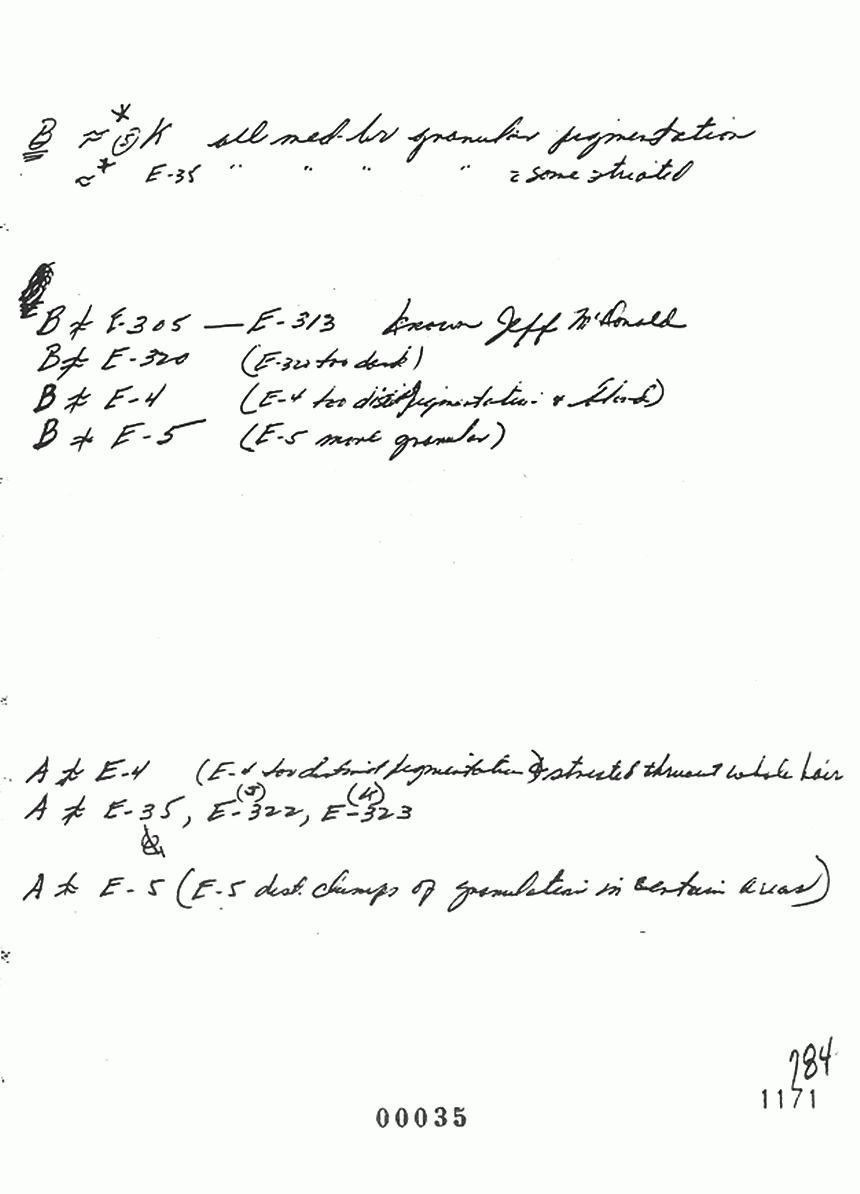 B ≈ *⑤ K all med-br granular pigmentation
≈* E-35 " " " " = some striated
B ≠ E-305 — E-313 known Jeff McDonald
B ≠ E-320 (E-320 too dark)
B ≠ E-4 (E-4 too dist pigmentation +
B ≠ E-5 (E-5 more granular)
A ≠ E-4 (E-4 too distinct pigmentation & striated thruout whole hair
A ≠ E-35, E-322, (5) E-323 (4)
A ≠ E-5 (E-5 dist. clumps of granulation in certain areas)
284
1171
00035